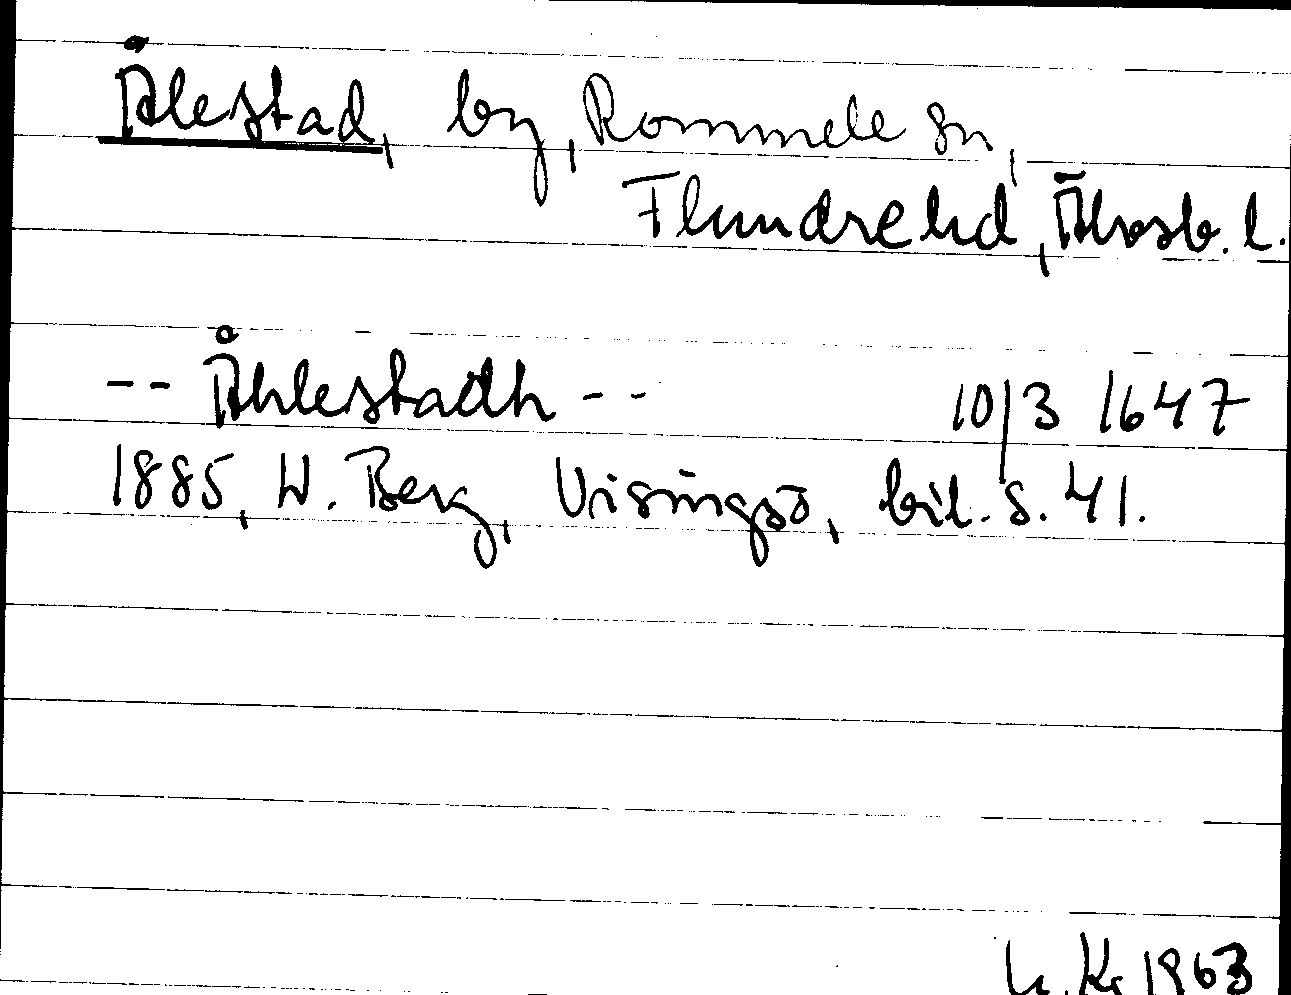 Ålestad, by, Rommele sn,
Flundre hd, Älvsb. l.
-- Åhlestadh -- 10/3 1647
1885, W. Berg, Visingsö, bil. s. 41.
Kr 1963